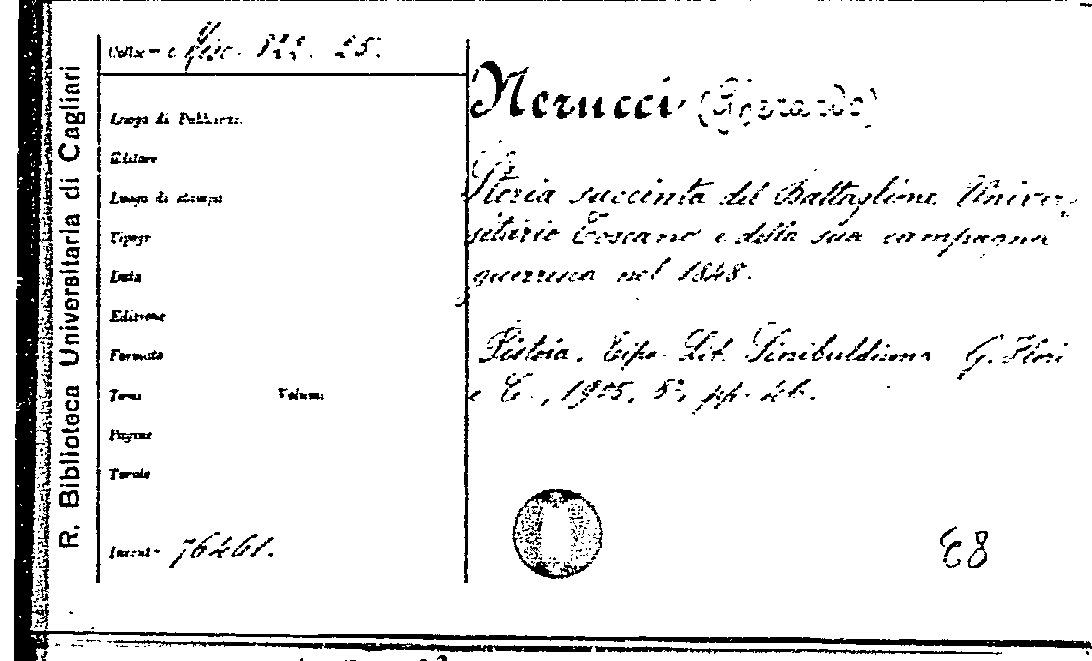 R. Biblioteca Universitaria di Cagliari
Misc. 822. 25.
Luogo di Pubblicaz.
Editore
Luogo di stampa
Tipogr
Data
Edizione
Formato
Tomo Volume
Pagine
Tavole
Invent. 76461.
Nerucci (Gherardo)
Storia succinta del Battaglione Univer
sitario Toscano e della sua campagna
guerresca nel 1848.
Pistoia, Tipo-Lit. Sinibuldiana G. Flori
e C., 1905, 8°, pp.
E8